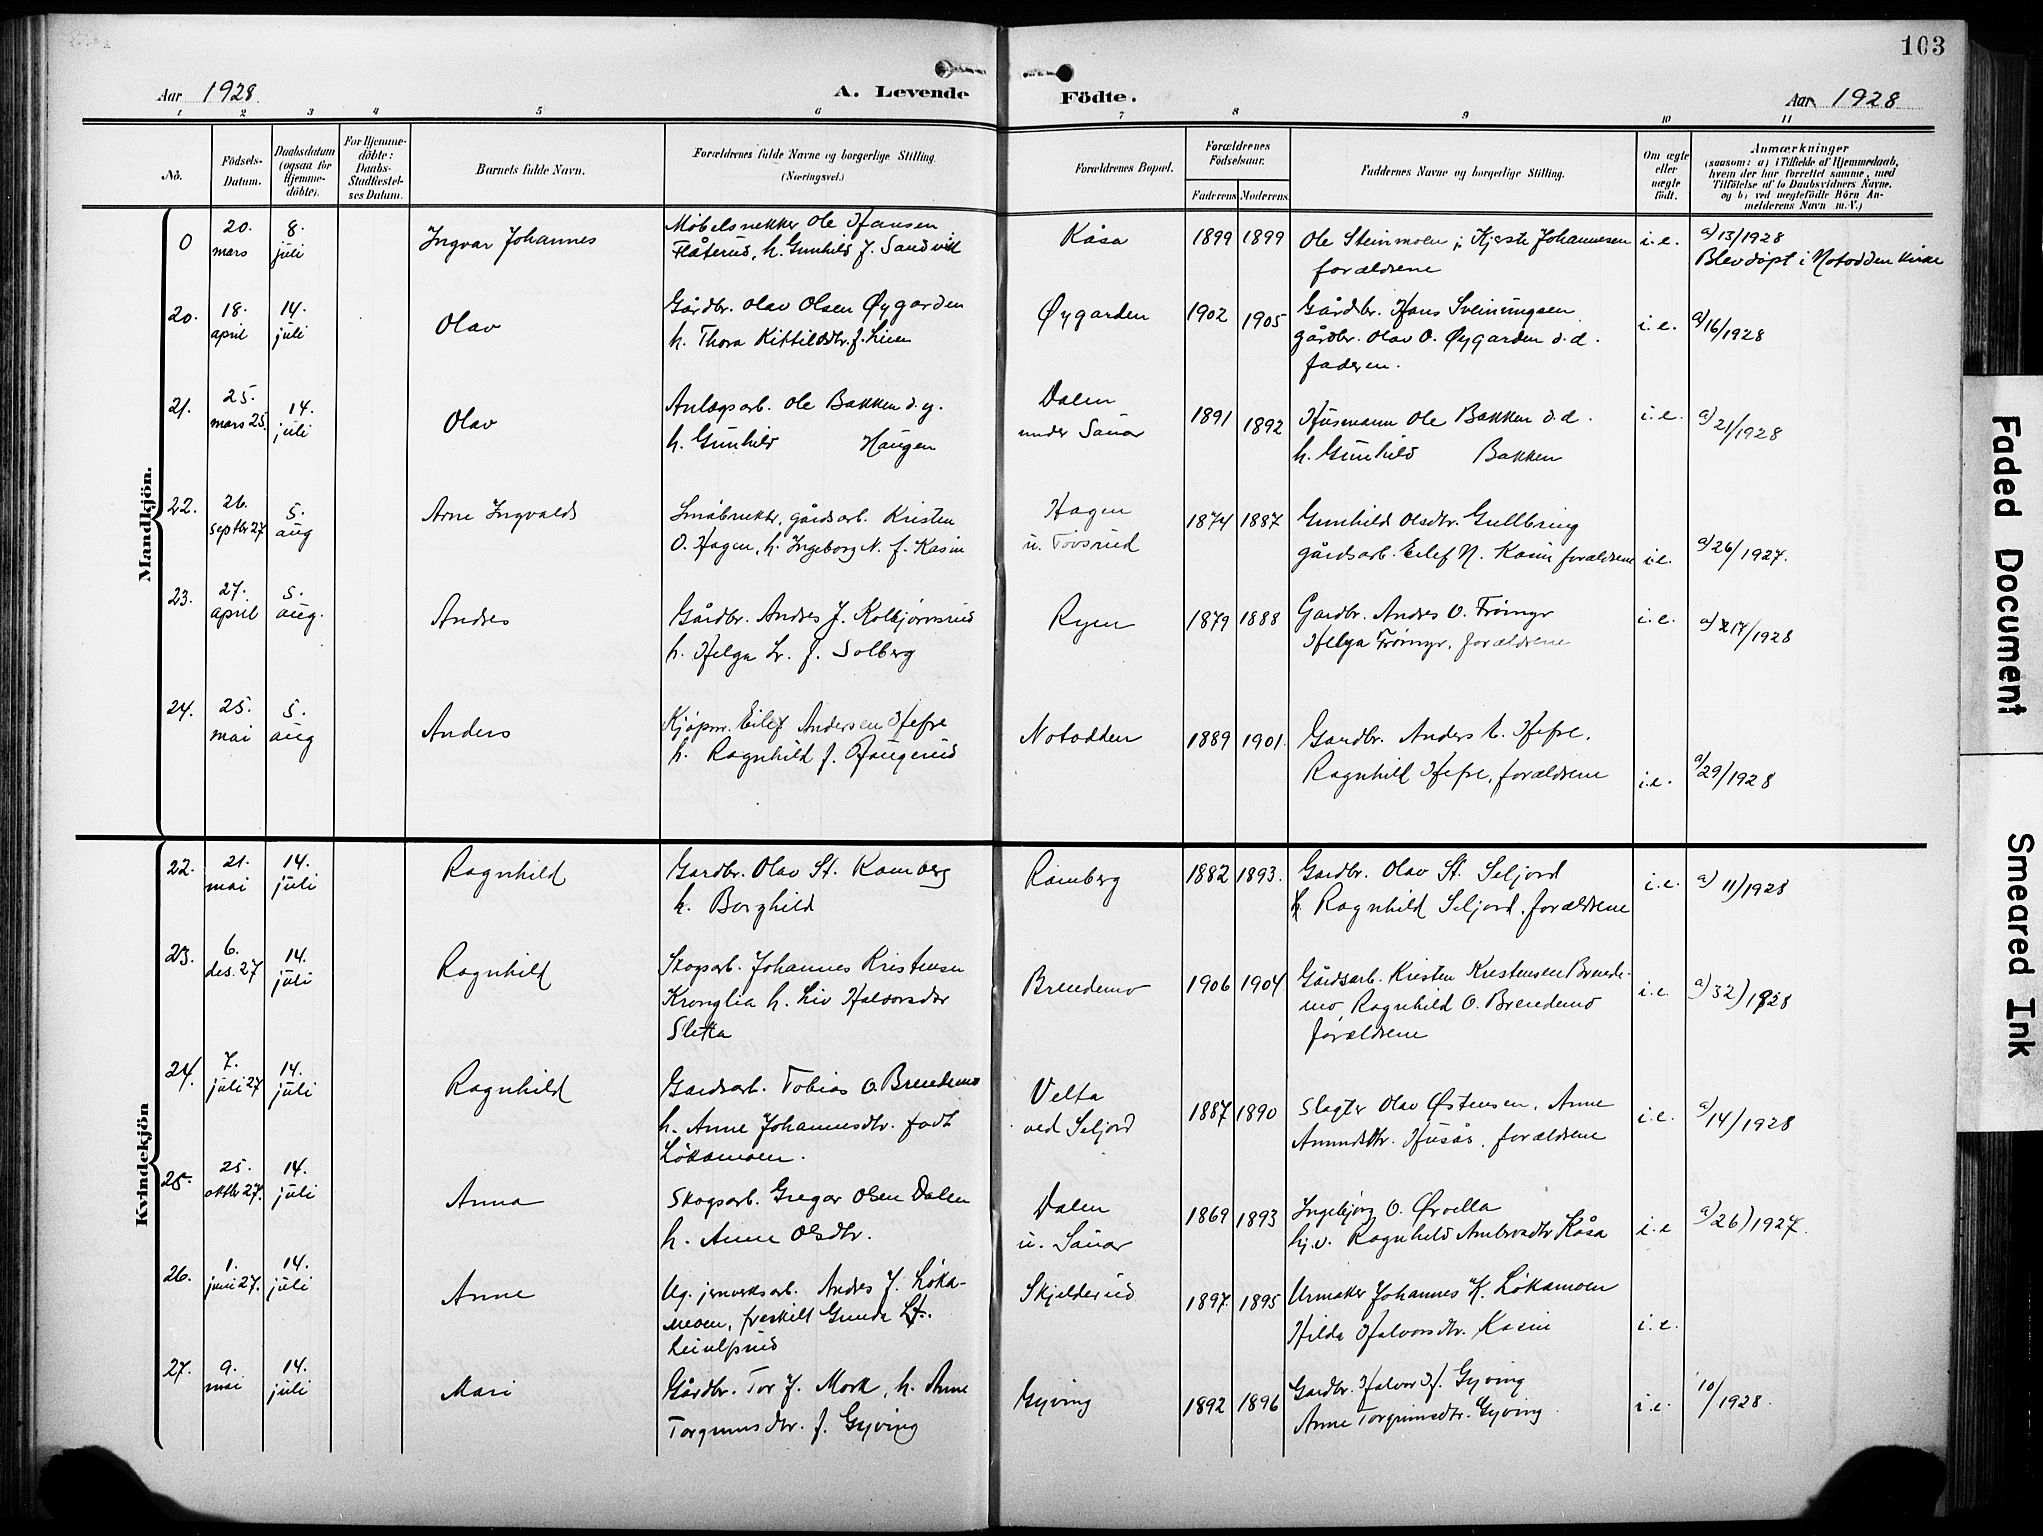 103
Aar 1928. A. Levende Födte. Aar 1928
1 2 3 4 5 6 7 8 9 10 11
No.
Födsels-
Datum.
Daabsdatum
(ogsaa for
Hjemme-
döbte).
For Hjemme-
döbte:
Daabs-
Stadfæstel-
ses Datum.
Barnets fulde Navn.
Forældrenes fulde Navne og borgerlige Stilling.
(Næringsvei.)
Forældrenes Bopæl.
Forældrenes
Födselsaar.
Faderens Moderens
Faddernes Navne og borgerlige Stilling.
Om ægte
eller
uægte
födt.
Anmærkninger
(saasom: a) i Tilfælde af Hjemmedaab,
hvem der har forrettet samme, med
Tilföielse af to Daabsvidners Navne.
og b) ved uægtefödte Börn An-
melderens Navn m.V.)
Mandkjön.
0 20. mars 8. juli Ingvar Johannes
Møbelsnekker Ole Hansen
Flåterud, h. Gunhild f. Sandvik
Kåsa 1899 1899
Ole Steinmoen; Kjerste Johannesen
forældrene
i.e.
a/13/1928
Blev døpt i Notodden kirke
20. 18. april 14. juli Olav
Gårdbr. Olav Olsen Øygarden
h. Thora Kittilsdtr. f. Lien
Øygarden 1902 1905
Gårdbr. Hans Sveinungsen
gårdbr. Olav O. Øygarden d.d.
faderen.
i.e. a/16/1928
21. 25. mars 25. 14. juli Olav
Anlægsarb. Ole Bakken d.y.
h. Gunhild Haugen
Dalen
under Sauar
1891 1892
Husmann Ole Bakken d.d.
h. Gunhild Bakken
i.e. a/21/1928
22. 26. septbr 27 5. aug Arne Ingvald
Småbruker, gårdsarb. Kristen
O. Hagen, h. Ingeborg N. f. Kasin
Hagen
u. Tovsrud
1874 1887
Gunhild Olsdtr. Gullbring
gårdsarb. Eilef N. Kasin forældrene
i.e. a/26/1927.
23. 27. april 5. aug. Andres
Gårdbr. Andres J. Kolbjørnsrud
h. Helga f. Solberg
Ryen 1879 1888
Gardbr. Andres O. Trømyr
Helga Trømyr, forældrene
i.e. a/17/1928
24. 25. mai 5. aug Anders
Kjøpm. Eilef Andersen Hefre
h. Ragnhild f. Haugerud
Notodden 1889 1901.
Gardbr. Anders E. Hefre.
Ragnhild Hefre, forældrene
i.e. a/29/1928
Kvindekjön
22. 21. mai 14. juli Ragnhild
Gardbr. Olav St. Ramberg
h. Borghild
Ramberg 1882 1893.
Gardbr. Olav St. Seljord
h Ragnhild Seljord. forældrene
i.e. a) 11)1928
23. 6. des. 27 14. juli Ragnhild
Skogsarb. Johannes Kristensen
Kronglia h. Liv Halvorsdtr
Sletta
Brendemo 1906 1904
Gårdsarb. Kristen Kristensen Brende-
mo, Ragnhild O. Brendemo
forældrene
i.e. a) 32) 1928
24. 7. juli 27 14. juli Ragnhild
Gardsarb. Tobias O. Brendemo
h. Anne Johannesdtr. født
Løkamoen.
Velta
ved Seljord
1887 1890
Slagter Olav Østensen. Anne
Amundsdtr. Husås. forældrene
i.e. a/14/1928
25. 25. oktbr 27. 14. juli Anna
Skogsarb. Gregar Olsen Dalen
h. Anne Olsdtr.
Dalen
u. Sauar
1869 1893
Ingebjørg O. Ørvella
hj.v. Ragnhild Ambrosdtr Kåsa
i.e a) 26) 1927.
26. 1. juni 27. 14. juli Anne
Ug. jernverksarb. Andres J. Løka-
moen, fraskilt Gunda
Skjelderud 1897. 1895
Urmaker Johannes K. Løkamoen
Hilda Halvorsdtr. Kasin
i.e.
27. 9. mai 14. juli Mari
Gårdbr. Tor J. Mork, h. Anne
Torgrimsdtr. f. Gyving
Gyving 1892 1896
Gardbr. Halvor H. Gyving
Anne Torgrimsdtr. Gyving
i.e. 10/1928.
Faded Document
Smeared Ink